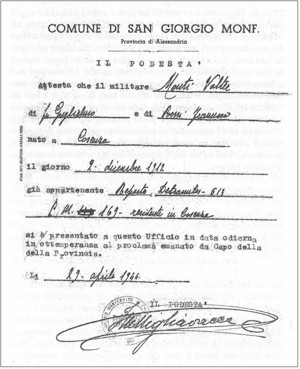 COMUNE DI SAN GIORGIO MONF.
Provincia di Alessandria
IL PODESTA'
Attesta che il militare Monti Valter
di fu Guglielmo e di Rossi Francesca
nato a Cosenza
il giorno 2 - dicembre 1912
già appartenente Reparto Distaccato - 513
P.M. 169 - residente in Cosenza
si è presentato a questo Ufficio in data odierna
in ottemperanza al proclama emanato da Capo della
della Provincia.
Li 29 - aprile 1944
IL PODESTA'